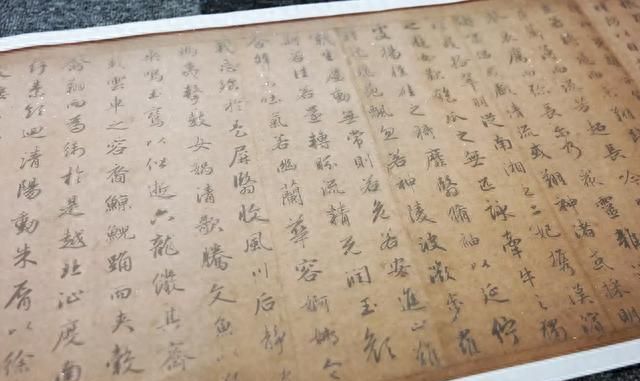 超長吟
厲而弥長尔乃衆靈雜
戲清流或翔神渚或採明
拾翠羽從南湘之二妃攜漢濱
之遊女歎匏瓜之無匹詠牽牛之獨
處揚輕袿之猗靡翳脩袖以延佇
體迅飛鳬飄忽若神陵波微步羅
襪生塵動無常則若危若安進止難
期若往若還轉眄流精光潤玉顏
含辭未吐氣若幽蘭華容婀娜令
我忘飡於是屏翳收風川后靜
馮夷擊鼓女媧清歌騰文魚以
乘鳴玉鸞以偕逝六龍儼其齊
載雲車之容裔鯨鯢踊而夾轂
禽翔而爲衛於是越北沚度南
領迴清陽動朱脣以徐